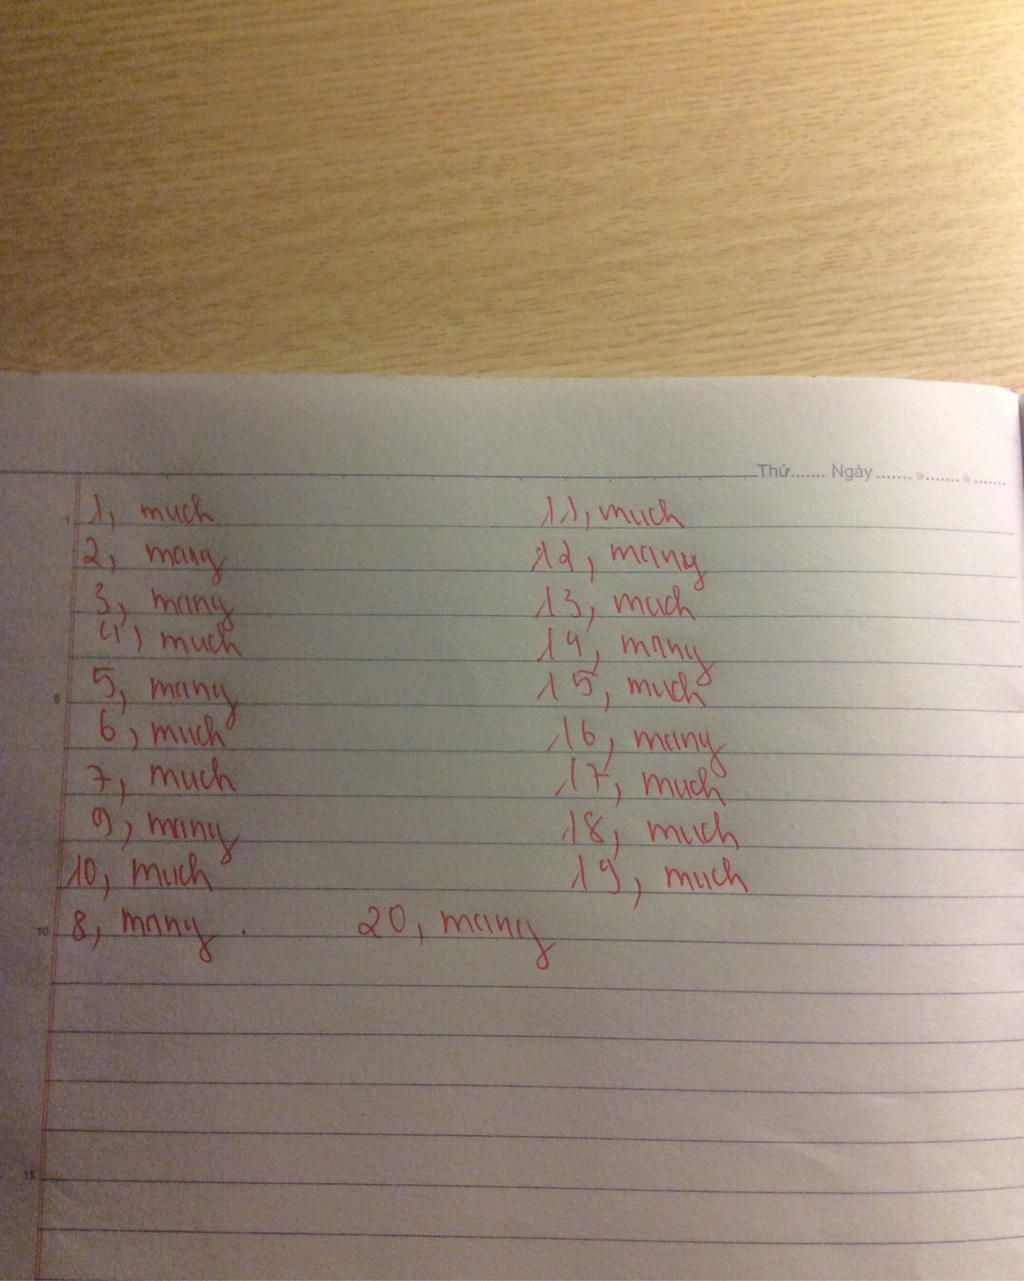 Thứ....... Ngày ....... ....... .......
1, much 11, much
2, many 12, many
3, many 13, much
4, much 14, many
5, many 15, much
6, much 16, many
7, much 17, much
9, many 18, much
10, much 19, much
8, many . 20, many
1
5
10
15